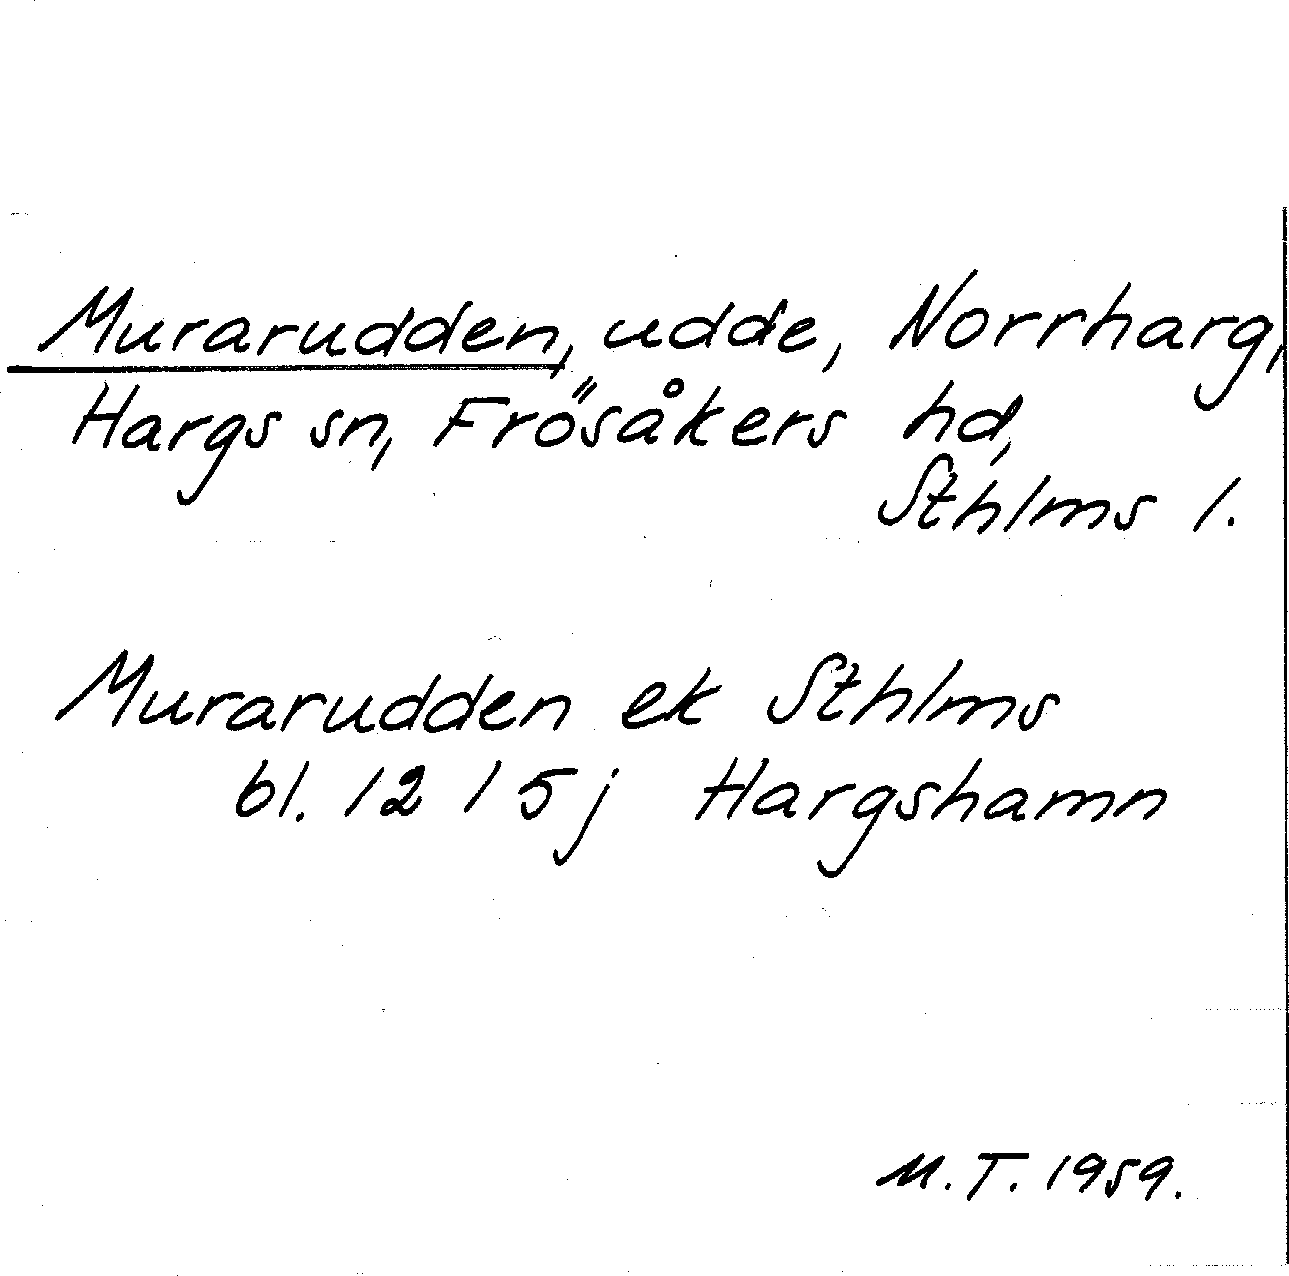 Murarudden, udde, Norrharg,
Hargs sn, Frösåkers hd,
Sthlms l.
Murarudden ek Sthlms
bl. 12 I 5j Hargshamn
M.T. 1959.